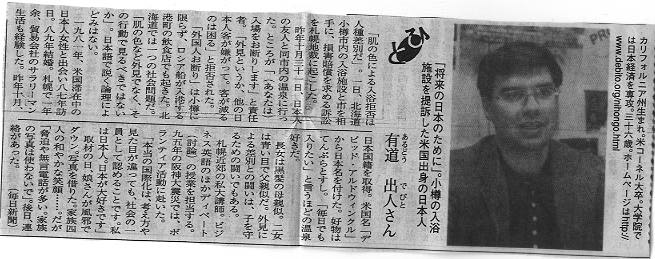 カリフォルニア州生まれ。米コーネル大卒。大学院で
は日本経済を専攻。三十六歳。ホームページはhttp://
www.debito.org/nihongo.html
ひと
「将来の日本のために」。小樽の入浴
施設を提訴した米国出身の日本人
あるどう でびと
有道 出人さん
「肌の色による入浴拒否は
人種差別だ」。一日、北海道
小樽市内の入浴施設と市を相
手に、損害賠償を求める訴訟
を札幌地裁に起こした。
昨年十月三十一日、日本人
の友人と同市内の温泉に行っ
た。ところが「（あなたは）
入場をお断りします」と責任
者。「外見というか、他の日
本人客が嫌がって、客が減る
のは困る」と拒否された。
「外国人お断り」は小樽に
限らず、ロシア船が入港する
港町の飲食店でも起きた。北
海道では一つの社会問題だ。
「肌の色など外見でなく、そ
の行動で見るべきではない
か」。日本語で説く論理によ
どみはない。
一九八一年、米国滞在中の
日本人女性と出会い八七年訪
日。八九年結婚。札幌で一年
余、貿易会社のサラリーマン
生活も経験した。昨年十月、
日本国籍を取得。米国名「デ
ビッド・アルドウィンクル」
から日本名を付けた。好物は
てんぷらとすし。「毎日でも
入りたい」と言うほどの温泉
好きだ。
長女は黒髪の母親似。二女
は青い目で父親似だ。外見に
よる差別との闘いは、子を守
るための闘いでもある。
札幌近郊の私大講師。ビジ
ネス英語のほかディベート
（討論）の授業を担当する。
九五年の阪神大震災では、ボ
ランティア活動に赴いた。
「本当の国際化は、考え方や
見た目が違っても、社会の一
員として認めることです。私
は日本人。日本が大好きです」
取材の日、娘さんが風邪で
ダウン。写真を借りた。家族四
人の和やかな笑顔……。だが
「脅迫や無言電話が多い。家族
の写真を使わないで」。後日、連
絡があった。（毎日新聞）